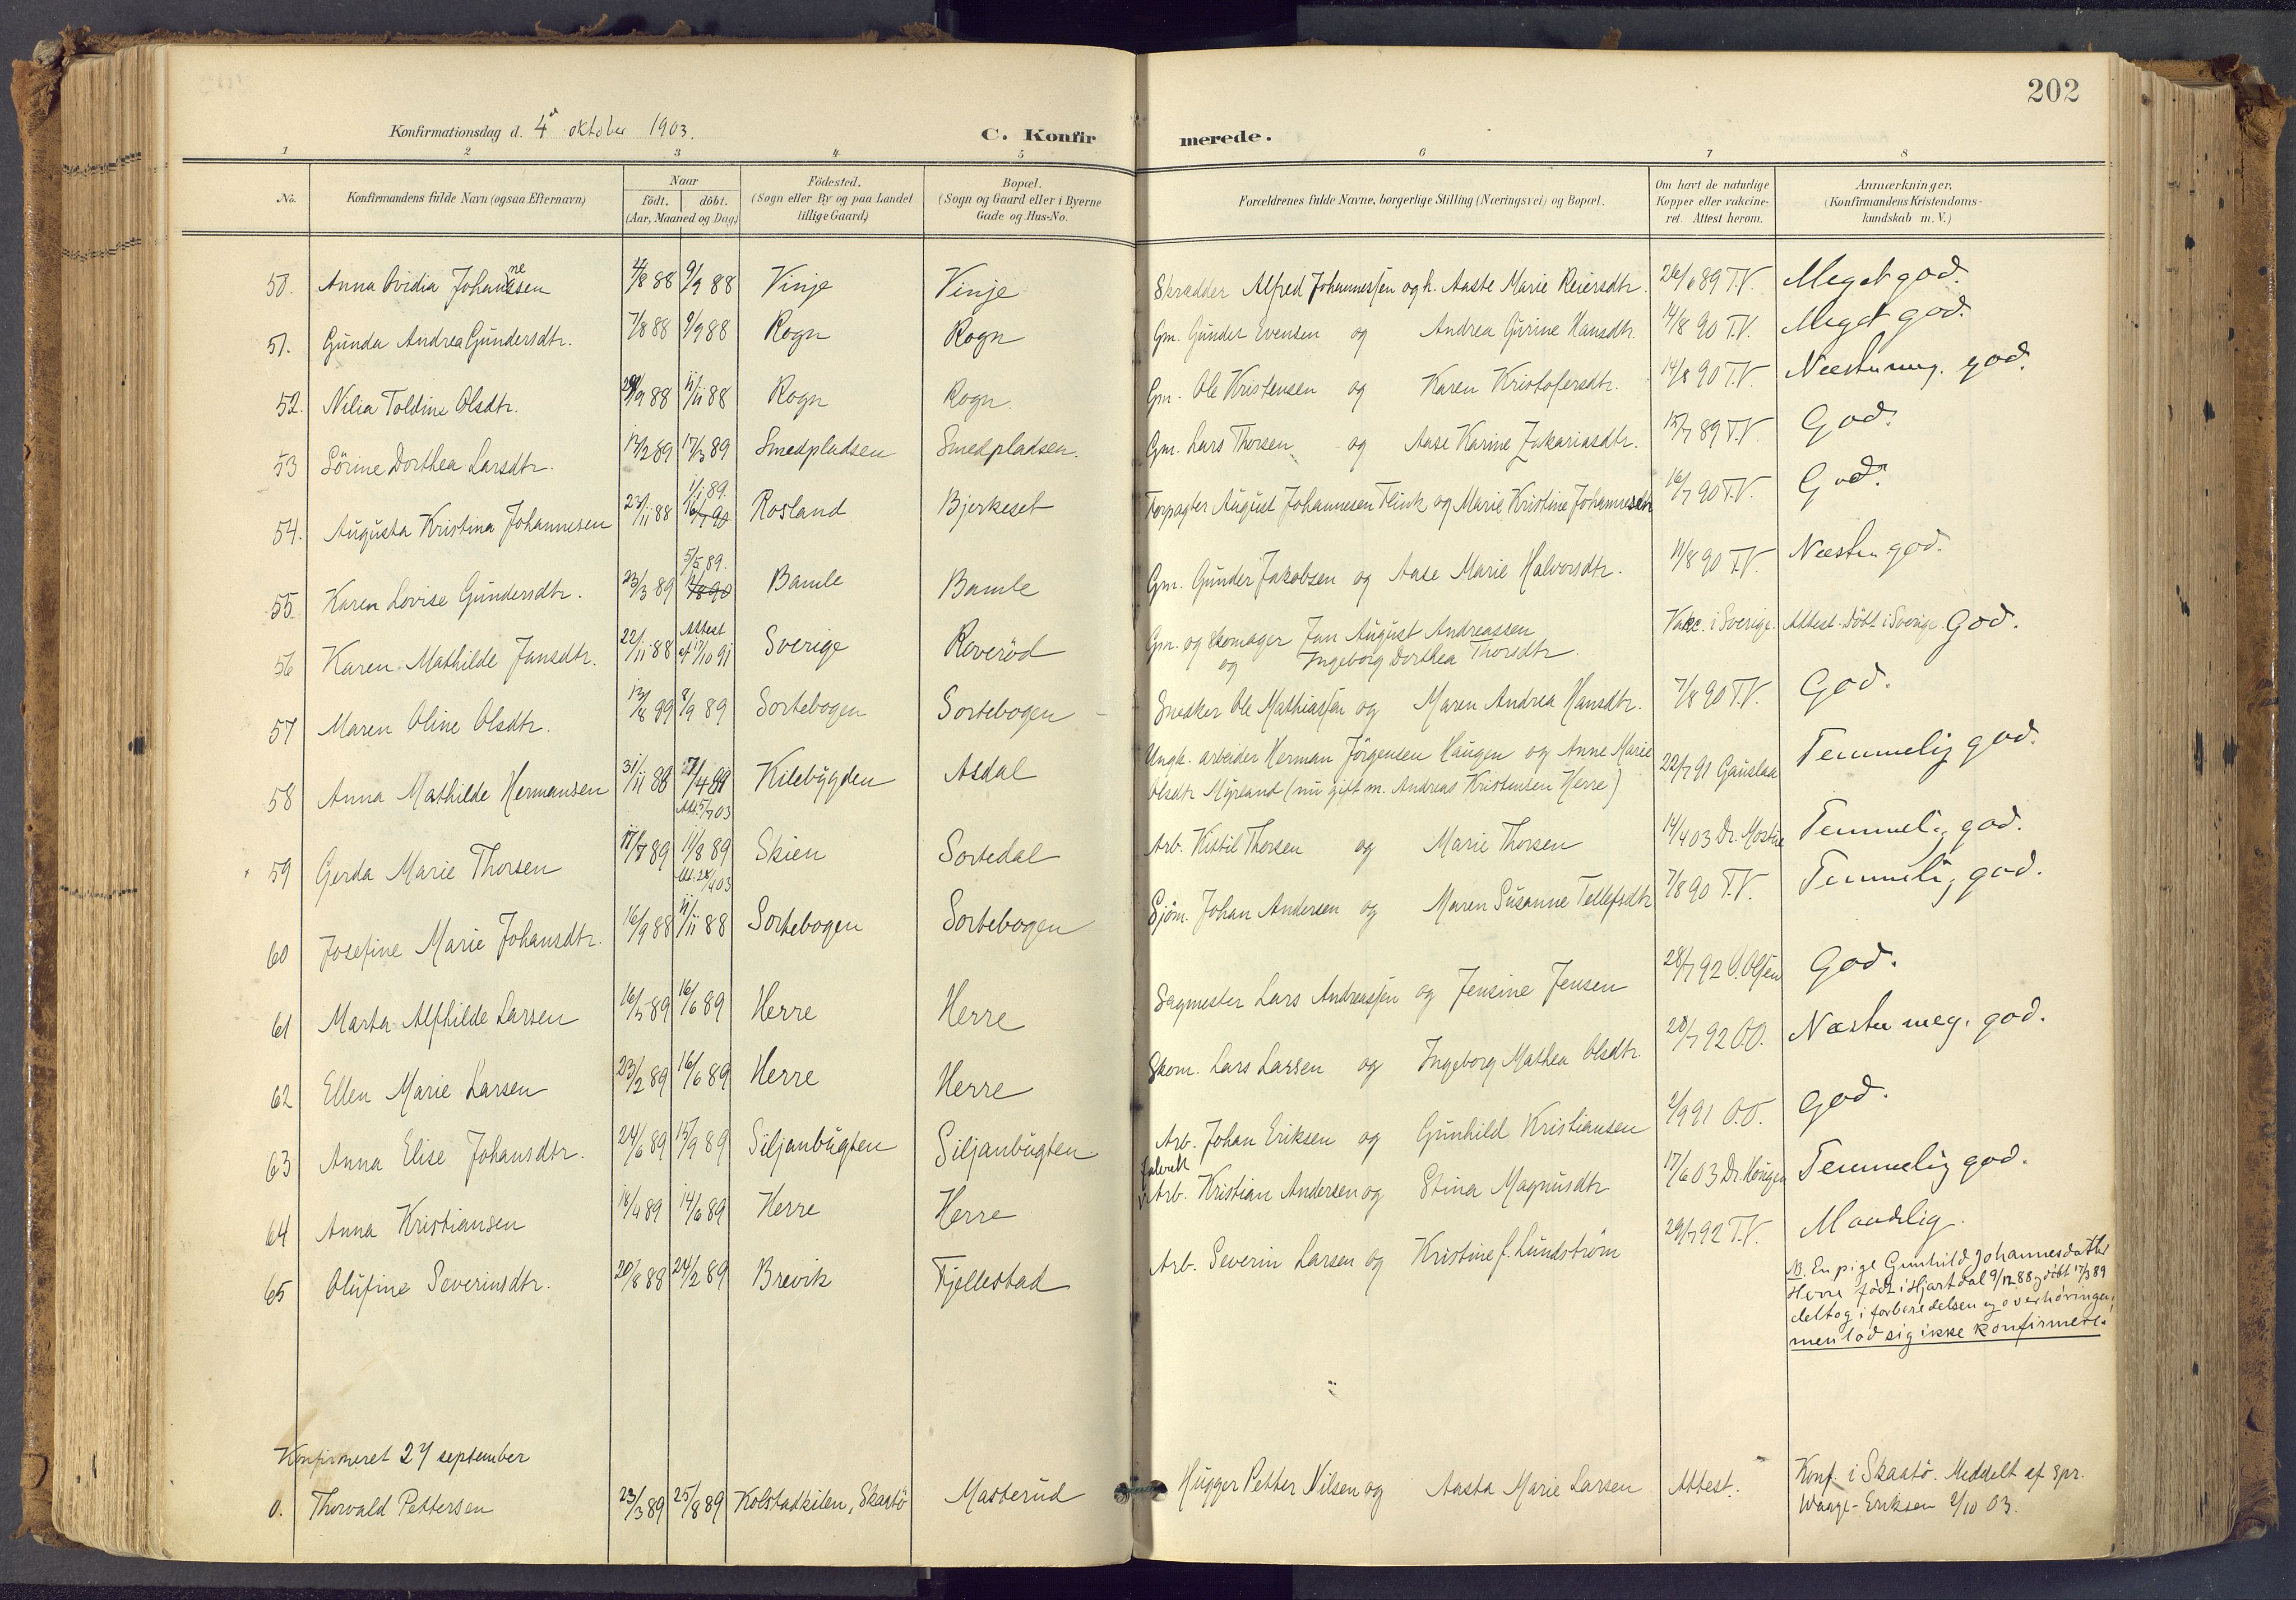 202
Konfirmationsdag d. 4de oktober 1903.
C. Konfir merede.
1 2 3 4 5 6 7 8
No. Konfirmandens fulde Navn (ogsaa Efternavn) Naar født. døbt. (Aar, Maaned og Dag) Fødested. (Sogn eller By og paa Landet tillige Gaard) Bopæl. (Sogn og Gaard eller i Byerne Gade og Hus-No. Forældrenes fulde Navne, borgerlige Stilling (Næringsvei) og Bopæl. Om havt de naturlige Kopper eller vakcineret. Attest herom. Anmærkninger. (Konfirmandens Kristendomskundskab m. V.)
50. Anna Ovidia Johannesen 4/8 88 9/9 88 Vinje Vinje Skrædder Alfred Johannessen og h. Aaste Marie Reiersdtr. 26/6 89 T.V. Meget god.
51. Gunda Andrea Gundersdtr. 7/8 88 9/9 88 Rogn Rogn Gm. Gunder Evensen og Andrea Gurine Hansdtr. 14/8 90 T.V. Meget god.
52. Nilia Toldine Olsdtr. 9 88 11/11 88 Rogn Rogn. Gm. Ole Kristensen og Karen Kristofersdtr. 14/8 90 T.V. Næsten meg. god.
53 Sörine Dorthea Larsdtr. 12/2 89 17/3 89 Smedpladsen Smedpladsen. Gm. Lars Thorsen og Aase Karine Zakariasdtr. 15/7 89 T.V. God.
54. Augusta Kristina Johannesen 23/11 88 1/1 89. 16/7 90 Rosland Bjerkeset Forpagter August Johannesen Flink og Marie Kristine Johannesdtr 16/7 90 T.V. God.
55 Karen Lovise Gundersdtr. 23/3 89 5/5 89. 14/8 90 Bamle Bamle Gm. Gunder Jakobsen og Aase Marie Halvorsdtr. 14/8 90 T.V. Næsten god.
56 Karen Mathilde Jansdtr. 22/11 88 Attest af 17/10 91 Sverige Roveröd Gm. og Skomager Jan August Andreassen og Ingeborg Dorthea Thorsdtr. Vakc. i Sverige. Attest. Döbt i Sverige. God.
57 Maren Oline Olsdtr. 13/8 89 8/9 89 Sortebogen Sortebogen Snedker Ole Mathiassen og Maren Andrea Hansdtr. 7/8 90 T.V. God.
58 Anna Mathilde Hermansen 31/11 88 Att. 5/7 03 Kilebygden Asdal Ungk. arbeider Herman Jörgensen Haugen og Anne Marie Olsdtr Myrland (nu gift m. Andreas Kristensen Herre) 22/7 91 Gauslaa Temmelig god.
59 Gerda Marie Thorsen 17/7 89 11/8 89 Att. 28/4 03 Skien Sortedal Arb. Kittil Thorsen og Marie Thorsen 14/4 03 Dr. Mostue Temmelig god.
60 Josefine Marie Johansdtr. 16/9 88 11/11 88 Sortebogen Sortebogen Sjöm. Johan Andersen og Maren Susanne Tellefsdtr 7/8 90 T.V. Temmelig god.
61 Marta Alfhilde Larsen 16/5 89 16/6 89 Herre Herre Sagmester Lars Andreassen og Jensine Jensen 28/7 92 O. Olsen God.
62 Ellen Marie Larsen 23/2 89 16/6 89 Herre Herre Skom. Lars Larsen og Ingeborg Mathea Olsdtr. 28/7 92 O.O. Næsten meg. god.
63 Anna Elise Johansdtr. 24/6 89 15/9 89 Siljanbugten Siljanbugten Arb. Johan Eriksen og Gunhild Kristiansen 2/9 91 O.O. God.
64 Anna Kristiansen 18/4 89 14/6 89 Herre Herre Arb. Kristian Andersen og Stina Magnusdtr 17/6 03 Dr. Haugen Temmelig god.
65 Olufine Severinsdtr. 20/8 88 24/2 89 Brevik Fjellestad Arb. Severin Larsen og Kristine f. Lundström 29/7 92 T.V. Maadelig.
NB. En pige Gunhild Johannesdatter
Herre født i Hjartdal 9/12 88, døbt 17/3 89
deltog i forberedelsen og overhøringen,
men lod sig ikke konfirmere.
Konfirmeret 27 september
0. Thorvald Pettersen 23/3 89 25/8 89 Kolstadkilen, Skaatö Masterud Hugger Petter Nilsen og Aasta Marie Larsen Attest. Konf. i Skaatö. Meddelt af spr.
Waage-Eriksen 2/10 03.